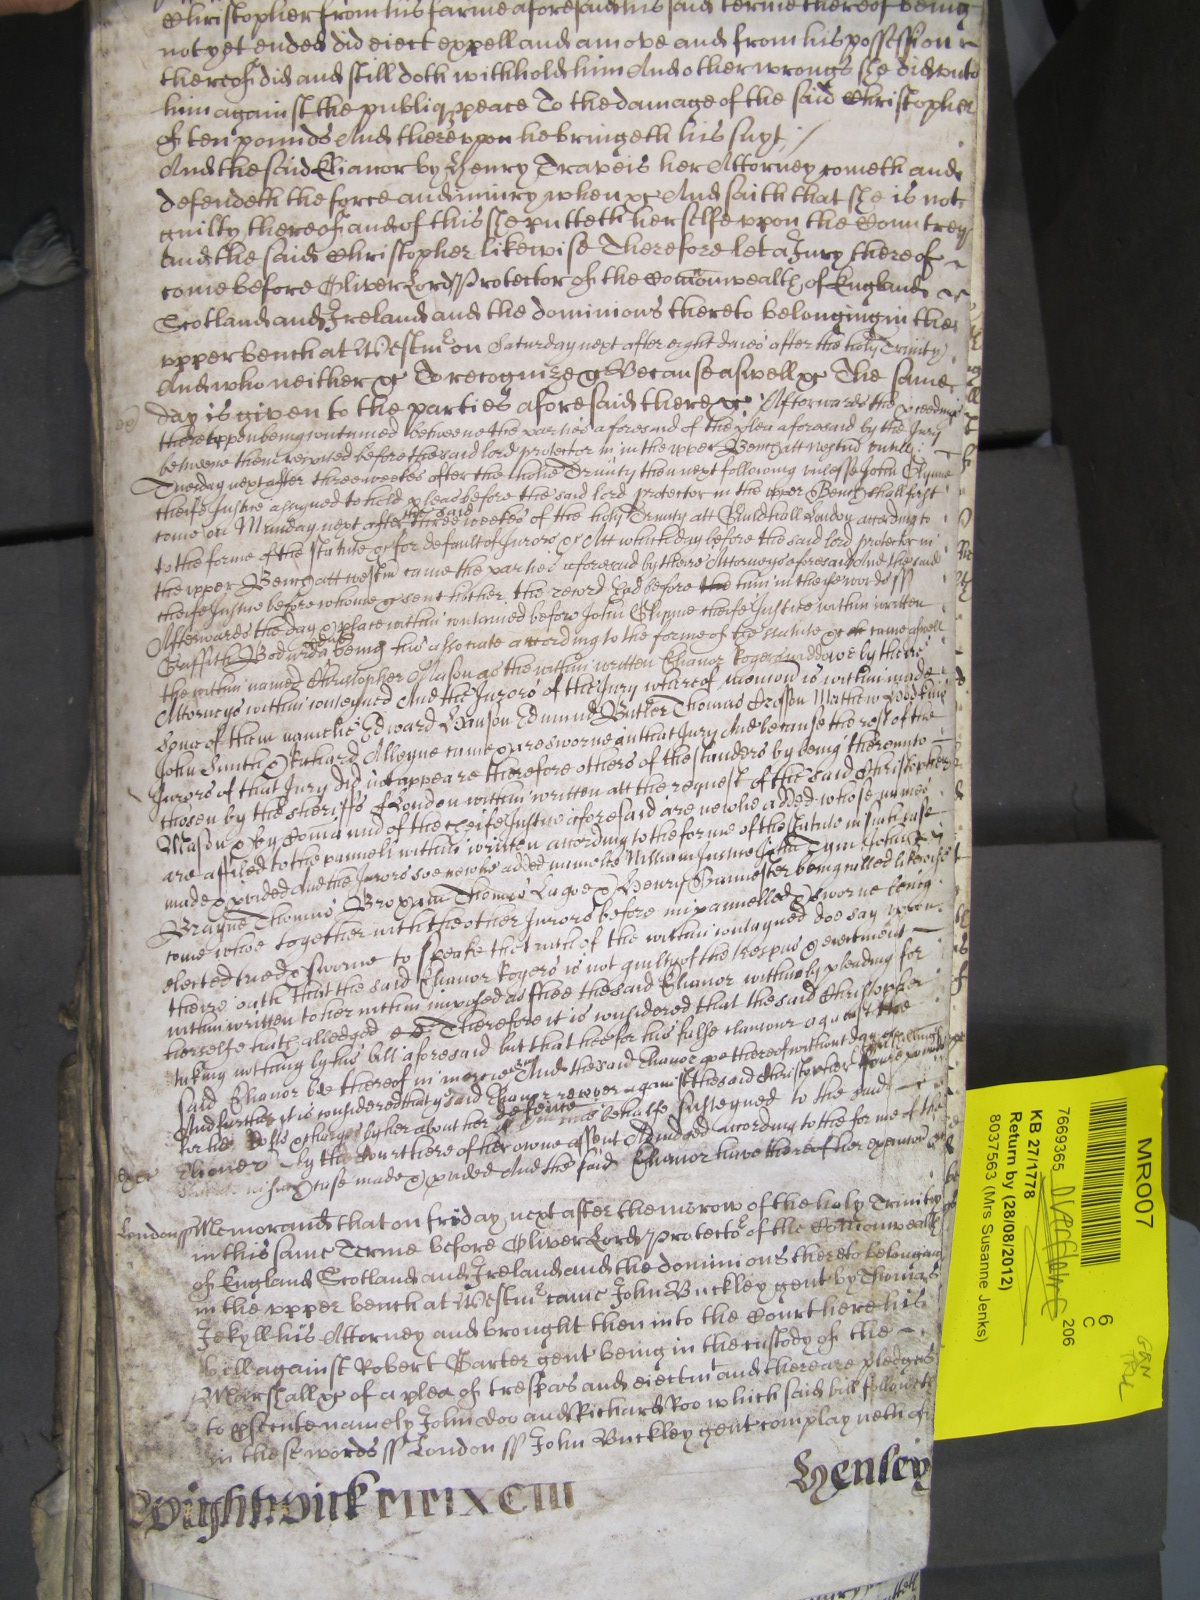 Christopher from his farme aforesaid his said terme thereof being
not yet ended did eject expell and amove and from his possession
thereof did and still doth withhold him And other wrongs she did unto
him against the publiq peace To the damage of the said Christopher
of ten pounds And thereupon he bringeth his suyt
And the said Elianor by Henry Traveis her Attorney cometh and
defendeth the force and iniury when &c And saith that she is not
guilty thereof and of this she putteth her selfe vpon the Countrey
and the said Christopher likewise Therefore let a Jury thereof
come before Oliver Lord Protector of the Comonwealth of England
Scotland and Ireland and the dominions thereto belonging in the
vpper bench at Westmr on Saturday next after eight daies after the holy Trinity
And who neither &c To recognize &c Because aswell &c The same
day is given to the parties aforesaid there &c Afterwards the proceedings
therevppon being continued betweene the parties aforesaid of the plea aforesaid by the Jury
betweene them respited before the said lord protector in the vpper Bench att Westm untill
Tuesday next after three weekes after the holie Trinity then next following unlesse John Glynne
cheife Justice assigned to hold pleas before the said lord protector in the vpper Bench shall first
come on Munday next after the said three weekes of the holy Trinity att Guildhall London according to
to the forme of the statute &c for default of Jurors &c Att which day before the said lord protector in
the vpper Bench att westm came the parties aforesaid by there Attorneys aforesaid And the said
cheife Justice before whome &c sent hither the record had before him in these words ss
Afterwards the day & place within contained before John Glynne cheife Justice within written
Griffith Bodurda being his associate according to the forme of the statute &c came aswell
the within named Christopher Mason as the within written Elianor Rogers widdowe by theire
Attorneys within conteyned And the Jurors of the Jury whereof mencion is within made
some of them namelie Edward Hanson Edmund Butler Thomas Crosson Mathew
John Smith & Richard Alleyne came & are sworne in that Jury And because the rest of the
Jurors of that Jury did not appeare therefore others of the standers by being therevnto
chosen by the sheriffs of London within written att the request of the said Christopher
Mason & by command of the cheife Justice aforesaid are newlie added whose names
are affiled to the pannell within written according to the forme of the statute in such case
made & provided And the Jurors soe newlie added namelie William Justice John Tym John
Brayne Thomas Broxam Thomas Lugoe & Henry Bannester being called likewise
come whoe together with the other Jurors before impannelled & sworne being
elected tried & sworne to speake the truth of the within contayned doe say vpon
theire oath That the said Elianor Rogers is not guilty of the trespas & eiectment
within written to her within imposed as shee the said Elianor within by pleading for
herselfe hath alledged Therefore it is considered that the said Christopher
taking nothing by his bill aforesaid but that hee for his false clamour against the
said Elianor bee thereof in mercie And the said Elianor goe thereof without day
And further it is considered that the said Elianor recover against the said Christopher
for her costs & charges by her about her defence in this behalfe susteyned to the said
Elianor by the Court here of her owne assent adiudged according to the forme of the
statute in such case made & provided And the said Elianor have thereof her execution &c
London ss Memorand that on friday next after the morrow of the holy Trinity
in this same Terme before Oliver Lord protector of the Comonwealth
of England Scotland and Ireland and the dominions thereto belonging
in the vpper bench at Westmr came John Buckley gent by Thomas
Jekyll his Attorney and brought then into the Court here his
bill against Robert Carter gent being in the custody of the
Marshall &c of a plea of trespas and eiectmt and there are pledges
to psecute namely John doo and Richard Roo which said bill followeth
in these words ss London ss John Buckley gent complayneth of
Wightwick
Henley
MR007
6
C
206
7669365
KB 27/1778
Return by (28/08/2012)
8037563 (Mrs Susanne Jenks)